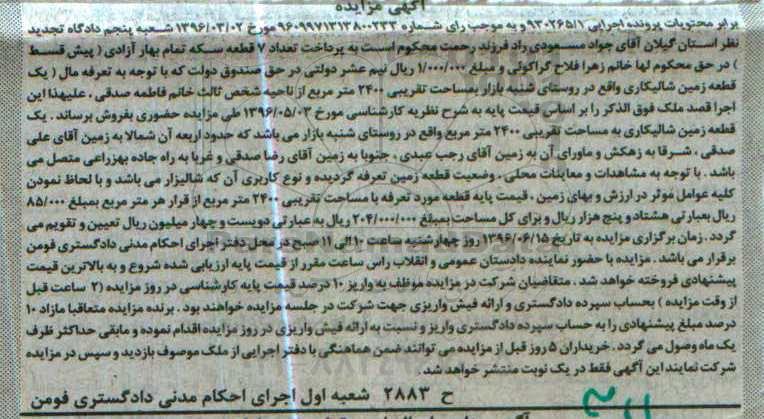 آگهی مزایده
برابر محتویات پرونده اجرایی ۹۳۰۲۶۵/۱ و به موجب رای شماره ۹۶۰۹۹۷۱۳۱۳۸۰۰۲۳۳ مورخ ۱۳۹۶/۰۳/۰۲ شعبه پنجم دادگاه تجدید
نظر استان گیلان آقای جواد مسعودی راد فرزند رحمت محکوم است به پرداخت تعداد ۷ قطعه سکه تمام بهار آزادی ( پیش قسط
) در حق محکوم لها خانم زهرا فلاح گراکوئی و مبلغ ۱/۰۰۰/۰۰۰ ریال نیم عشر دولتی در حق صندوق دولت که با توجه به تعرفه مال ( یک
قطعه زمین شالیکاری واقع در روستای شنبه بازار بمساحت تقریبی ۲۴۰۰ متر مربع از ناحیه شخص ثالث خانم فاطمه صدقی ، علیهذا این
اجرا قصد ملک فوق الذکر را بر اساس قیمت پایه به شرح نظریه کارشناسی مورخ ۱۳۹۶/۰۵/۰۳ طی مزایده حضوری بفروش برساند . یک
قطعه زمین شالیکاری به مساحت تقریبی ۲۴۰۰ متر مربع واقع در روستای شنبه بازار می باشد که حدود اربعه آن شمالا به زمین آقای علی
صدقی ، شرقا به زهکش و ماورای آن به زمین آقای رجب عبدی ، جنوبا به زمین آقای رضا صدقی و غربا به راه جاده بهزراعی متصل می
باشد . با توجه به مشاهدات و معاینات محلی ، وضعیت قطعه زمین تعرفه گردیده و نوع کاربری آن که شالیزار می باشد و با لحاظ نمودن
کلیه عوامل موثر در ارزش و بهای زمین ، قیمت پایه قطعه مورد تعرفه با مساحت تقریبی ۲۴۰۰ متر مربع از قرار هر متر مربع بمبلغ ۸۵/۰۰۰
ریال بعبارتی هشتاد و پنج هزار ریال و برای کل مساحت بمبلغ ۲۰۴/۰۰۰/۰۰۰ ریال به عبارتی دویست و چهار میلیون ریال تعیین و تقویم می
گردد . زمان برگزاری مزایده به تاریخ ۱۳۹۶/۰۶/۱۵ روز چهارشنبه ساعت ۱۰ الی ۱۱ صبح در محل دفتر اجرای احکام مدنی دادگستری فومن
برقرار می باشد . مزایده با حضور نماینده دادستان عمومی و انقلاب راس ساعت مقرر از قیمت پایه ارزیابی شده شروع و به بالاترین قیمت
پیشنهادی فروخته خواهد شد . متقاضیان شرکت در مزایده موظف به واریز ۱۰ درصد قیمت پایه کارشناسی در روز مزایده (۲ ساعت قبل
از وقت مزایده ) بحساب سپرده دادگستری و ارائه فیش واریزی جهت شرکت در جلسه مزایده خواهند بود . برنده مزایده متعاقبا مازاد ۱۰
درصد مبلغ پیشنهادی را به حساب سپرده دادگستری واریز و نسبت به ارائه فیش واریزی در روز مزایده اقدام نموده و مابقی حداکثر ظرف
یک ماه وصول می گردد . خریداران ۵ روز قبل از مزایده می توانند ضمن هماهنگی با دفتر اجرایی از ملک موصوف بازدید و سپس در مزایده
شرکت نمایند این آگهی فقط در یک نوبت منتشر خواهد شد .
ح ۲۸۸۳ شعبه اول اجرای احکام مدنی دادگستری فومن